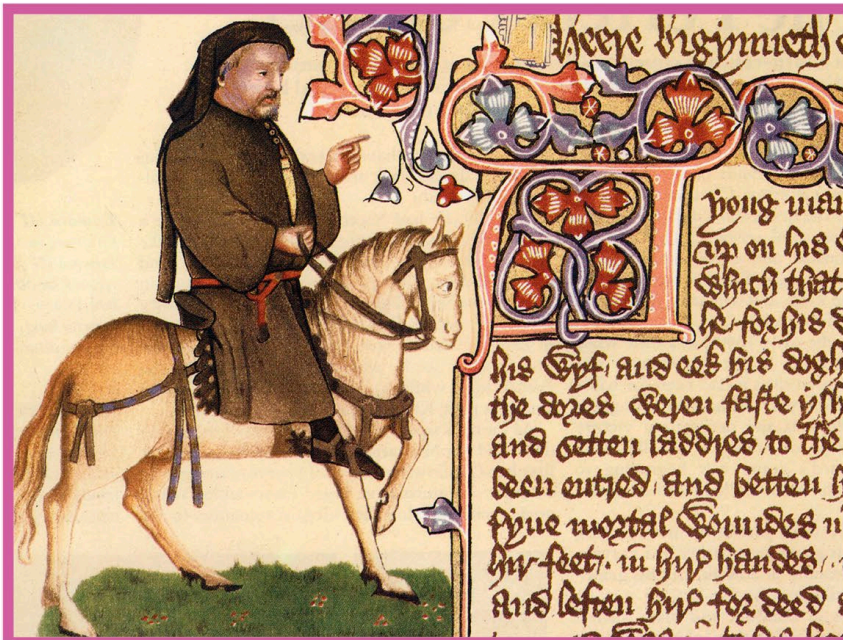 Heere bigynneth
A
yong man
vp on his
which that
he for his d
his wyf and eek his dogh
the dores weren faste ysh
and setten laddres to the
been entred and betten h
fyue mortal woundes in
hir feet in hir handes
and leften hir for deed a